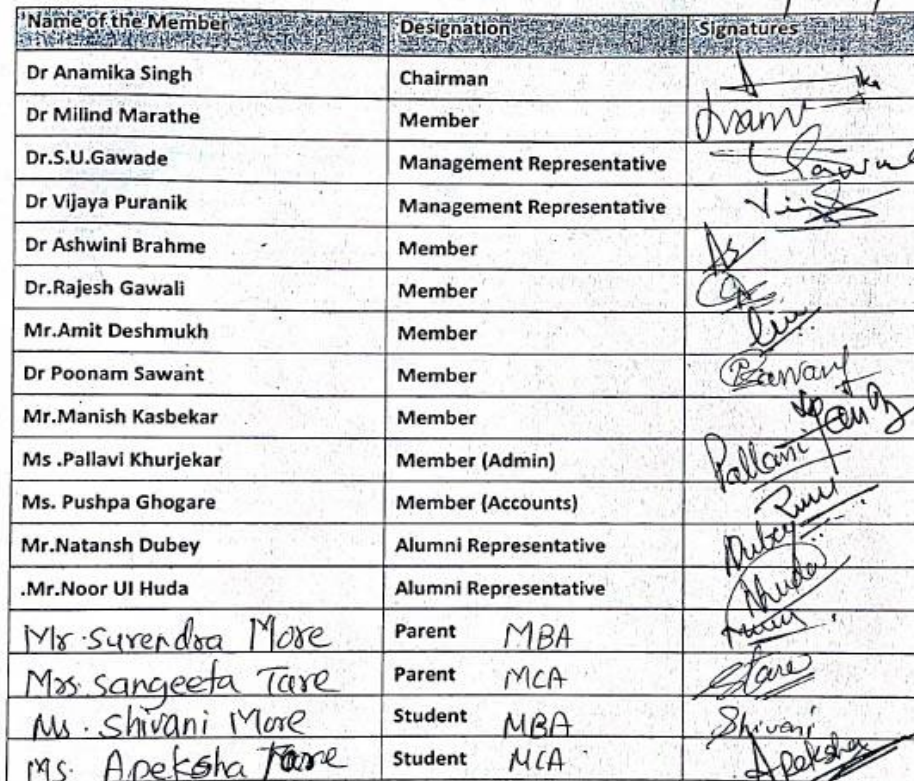 Name of the Member Designation Signatures
Dr Anamika Singh Chairman
Dr Milind Marathe Member
Dr.S.U.Gawade Management Representative
Dr Vijaya Puranik Management Representative
Dr Ashwini Brahme Member
Dr.Rajesh Gawali Member
Mr.Amit Deshmukh Member
Dr Poonam Sawant Member
Mr.Manish Kasbekar Member
Ms .Pallavi Khurjekar Member (Admin) Pallavi
Ms. Pushpa Ghogare Member (Accounts)
Mr.Natansh Dubey Alumni Representative Dubey
.Mr.Noor Ul Huda Alumni Representative Nhuda
Mr. Surendra More Parent MBA
Mrs. Sangeeta Tare Parent MCA Stare
Ms. Shivani More Student MBA Shivani
Ms. Apeksha Tare Student MCA Apeksha